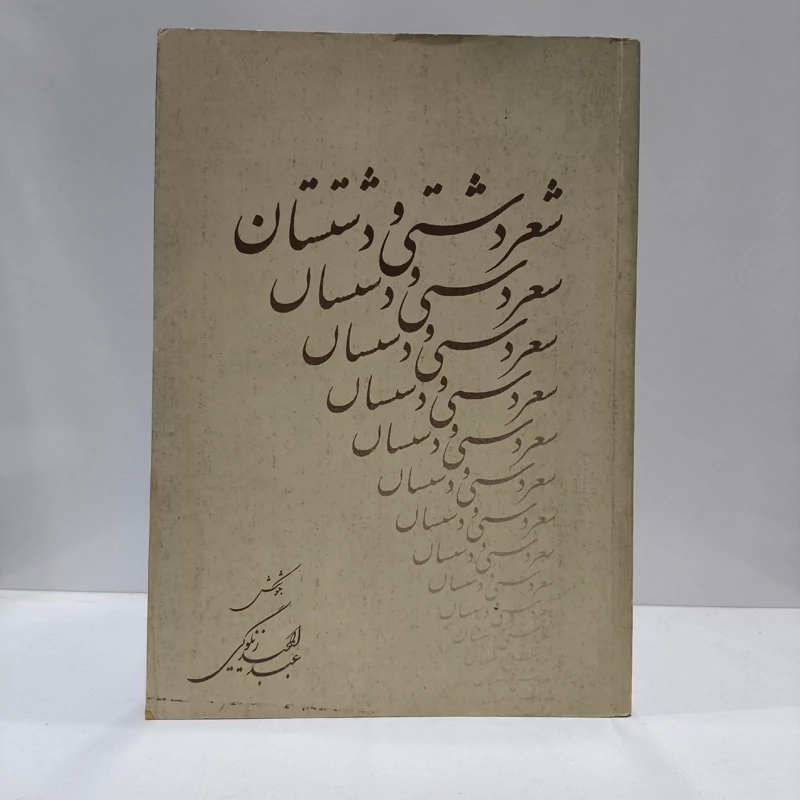 شعر دشتی و دشتستان
شعر دشتی و دشتستان
شعر دشتی و دشتستان
شعر دشتی و دشتستان
شعر دشتی و دشتستان
شعر دشتی و دشتستان
شعر دشتی و دشتستان
شعر دشتی و دشتستان
شعر دشتی و دشتستان
شعر دشتی و دشتستان
شعر دشتی و دشتستان
بکوشش
عبدالمجید زنگویی